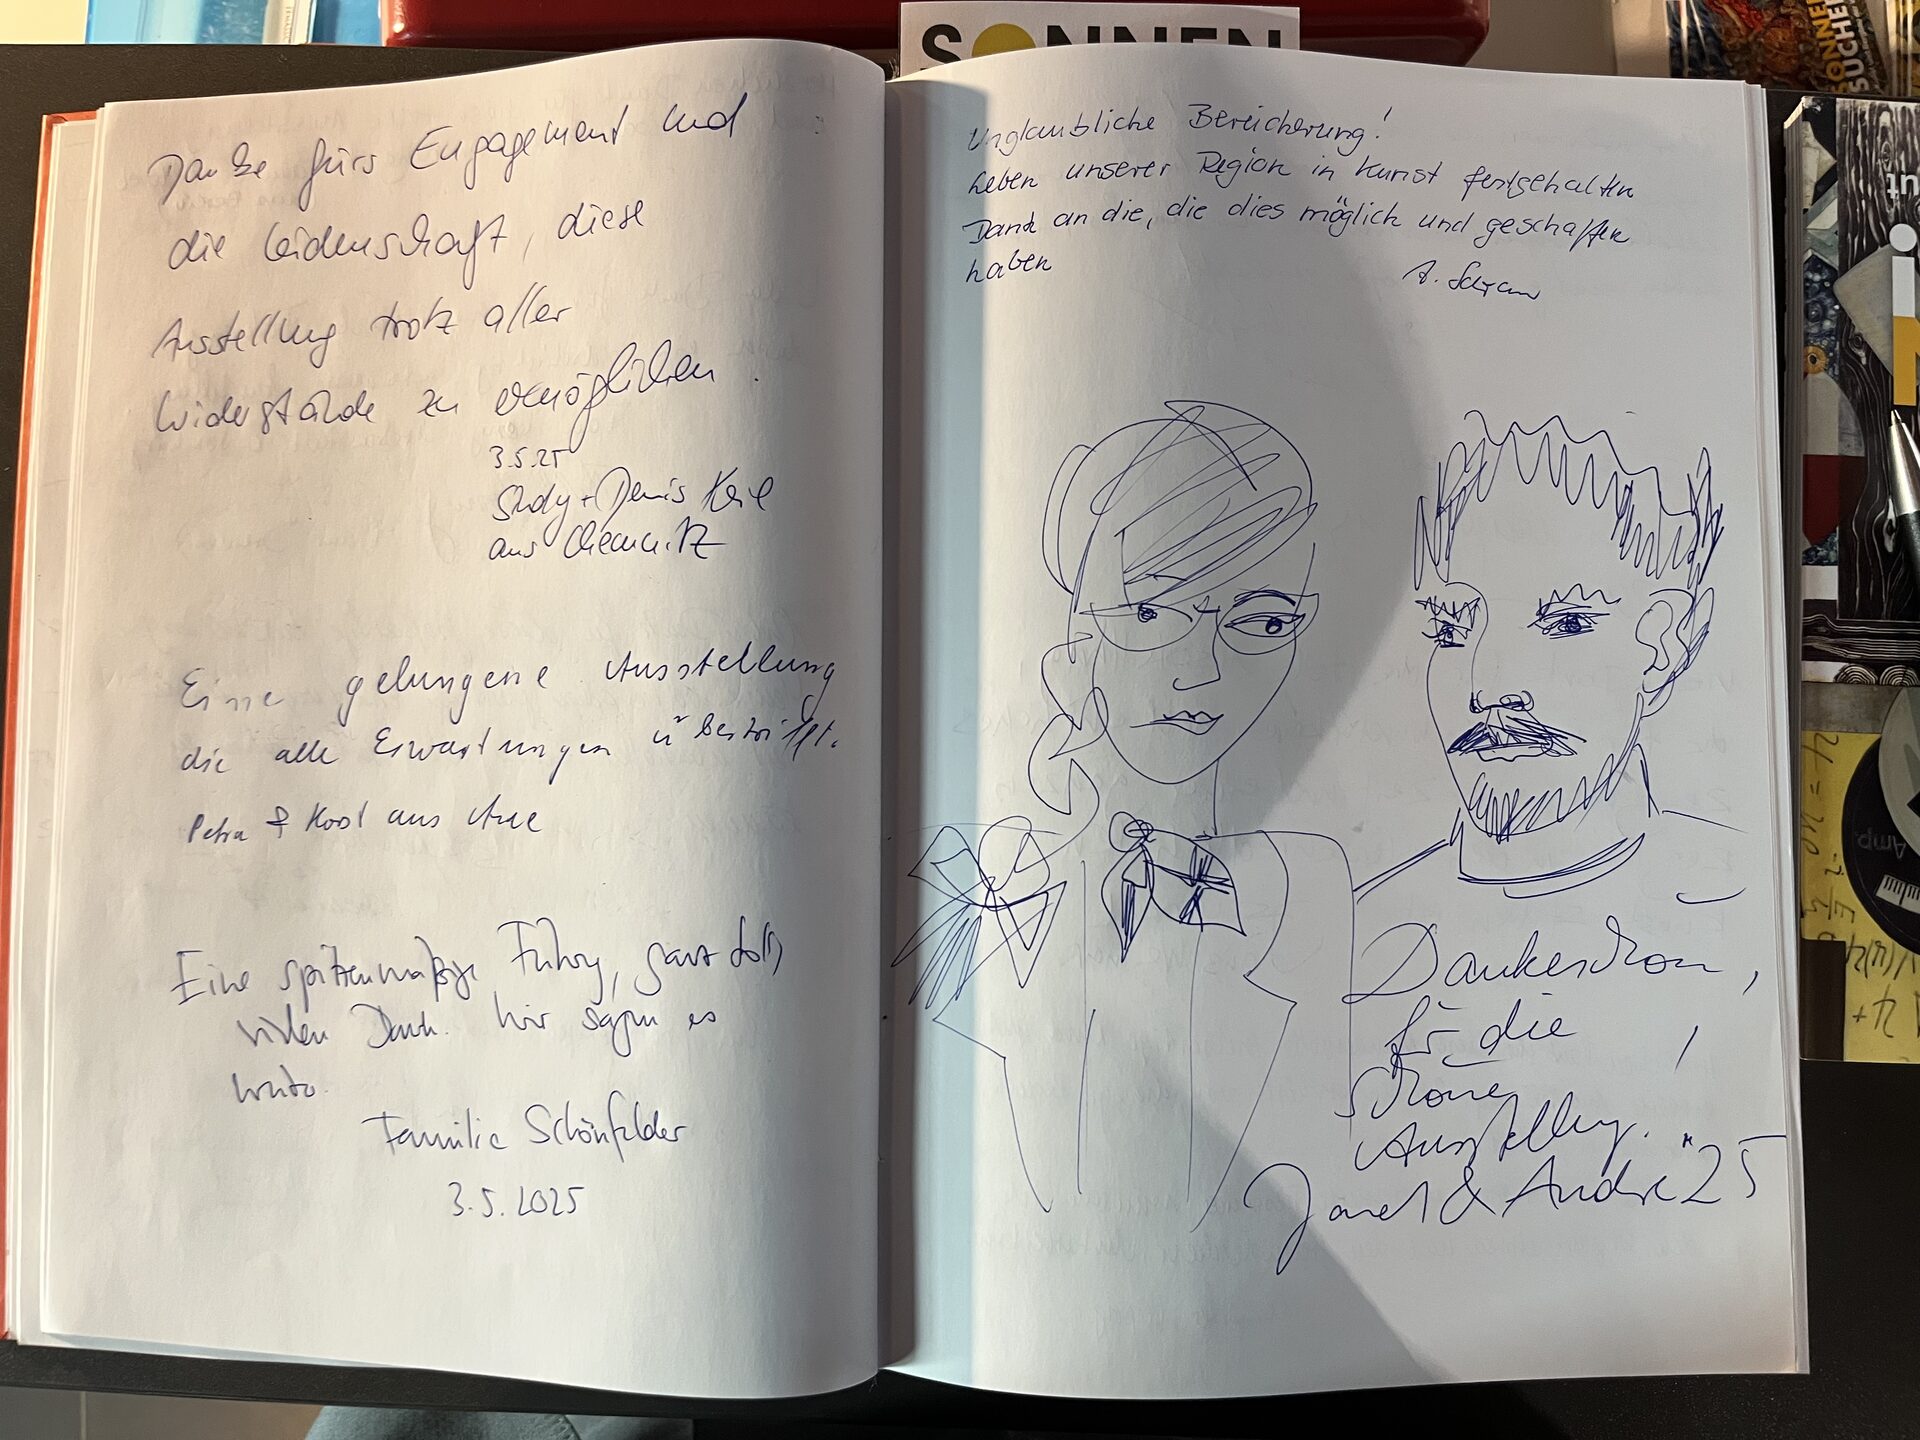 SONNEN
Danke fürs Engagement und
die Leidenschaft, diese
Ausstellung trotz aller
Widerstände zu ermöglichen.
3.5.25
+ Denis Keil
aus Chemnitz
Eine gelungene Ausstellung
die alle Erwartungen übertrifft.
Petra & aus Aue
Eine spitzenmäßige Führung, ganz toll,
vielen Dank. Wir sagen es
weiter.
Familie Schönfelder
3.5.2025
Unglaubliche Bereicherung!
Leben unserer Region in Kunst festgehalten
Dank an die, die dies möglich und geschaffen
haben
Dankeschön,
für die
schöne
Ausstellung.
Janet & Andre '25
SONNEN
SUCHE
Amp.